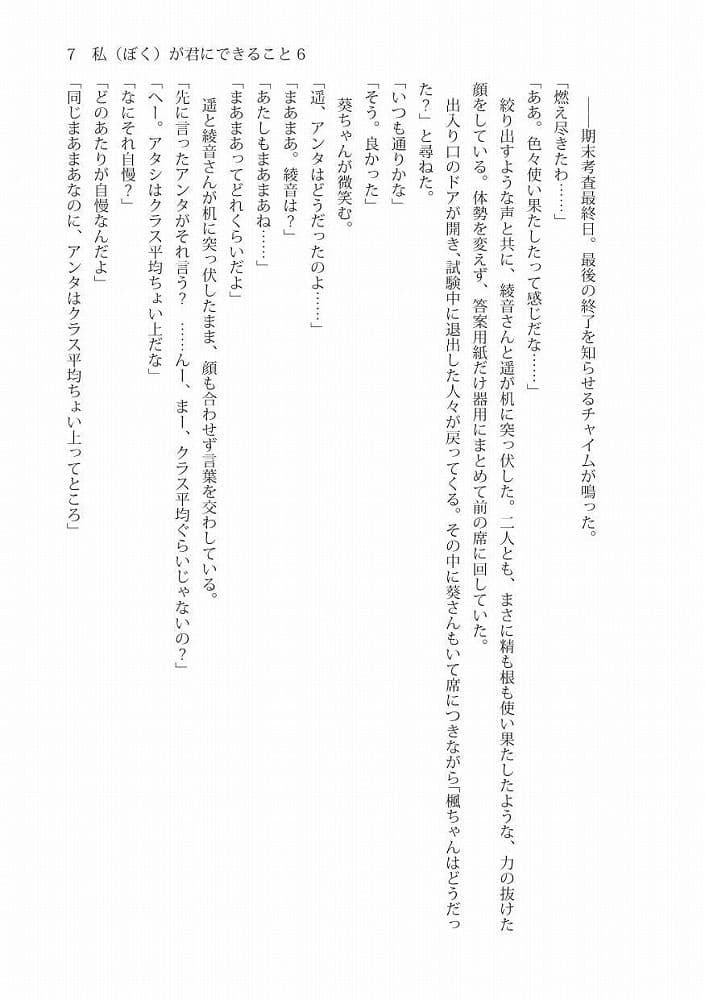 7　私（ぼく）が君にできること６
――期末考査最終日。最後の終了を知らせるチャイムが鳴った。
「燃え尽きたわ……」
「ああ。色々使い果たしたって感じだな……」
絞り出すような声と共に、綾音さんと遥が机に突っ伏した。二人とも、まさに精も根も使い果たしたような、力の抜けた
顔をしている。体勢を変えず、答案用紙だけ器用にまとめて前の席に回していた。
出入り口のドアが開き、試験中に退出した人々が戻ってくる。その中に葵さんもいて席につきながら「楓ちゃんはどうだっ
た？」と尋ねた。
「いつも通りかな」
「そう。良かった」
葵ちゃんが微笑む。
「遥、アンタはどうだったのよ……」
「まあまあ。綾音は？」
「あたしもまあまあね……」
「まあまあってどれくらいだよ」
遥と綾音さんが机に突っ伏したまま、顔も合わせず言葉を交わしている。
「先に言ったアンタがそれ言う？　……んー、まー、クラス平均ぐらいじゃないの？」
「へー。アタシはクラス平均ちょい上だな」
「なにそれ自慢？」
「どのあたりが自慢なんだよ」
「同じまあまあなのに、アンタはクラス平均ちょい上ってところ」